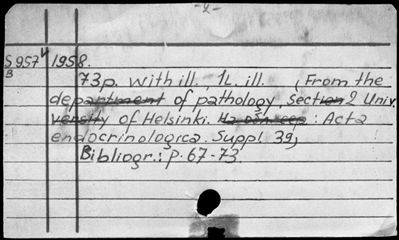 -2-
S957 1958.
B
73p. with ill., 1L. ill. , (From the
department of pathology, Section 2 Univ.
versity of Helsinki. : Acta
endocrinologica. Suppl. 39)
Bibliogr.: p. 67-73.